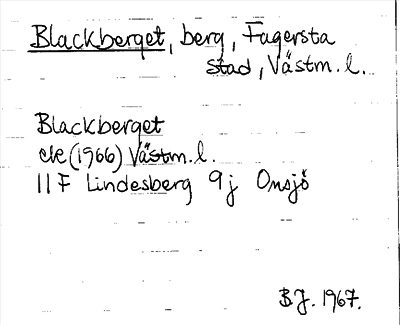 Blackberget, berg, Fagersta
stad, Västm. l.
Blackberget
ek (1966) Västm. l.
11 F Lindesberg 9 j Onsjö
B.J. 1967.